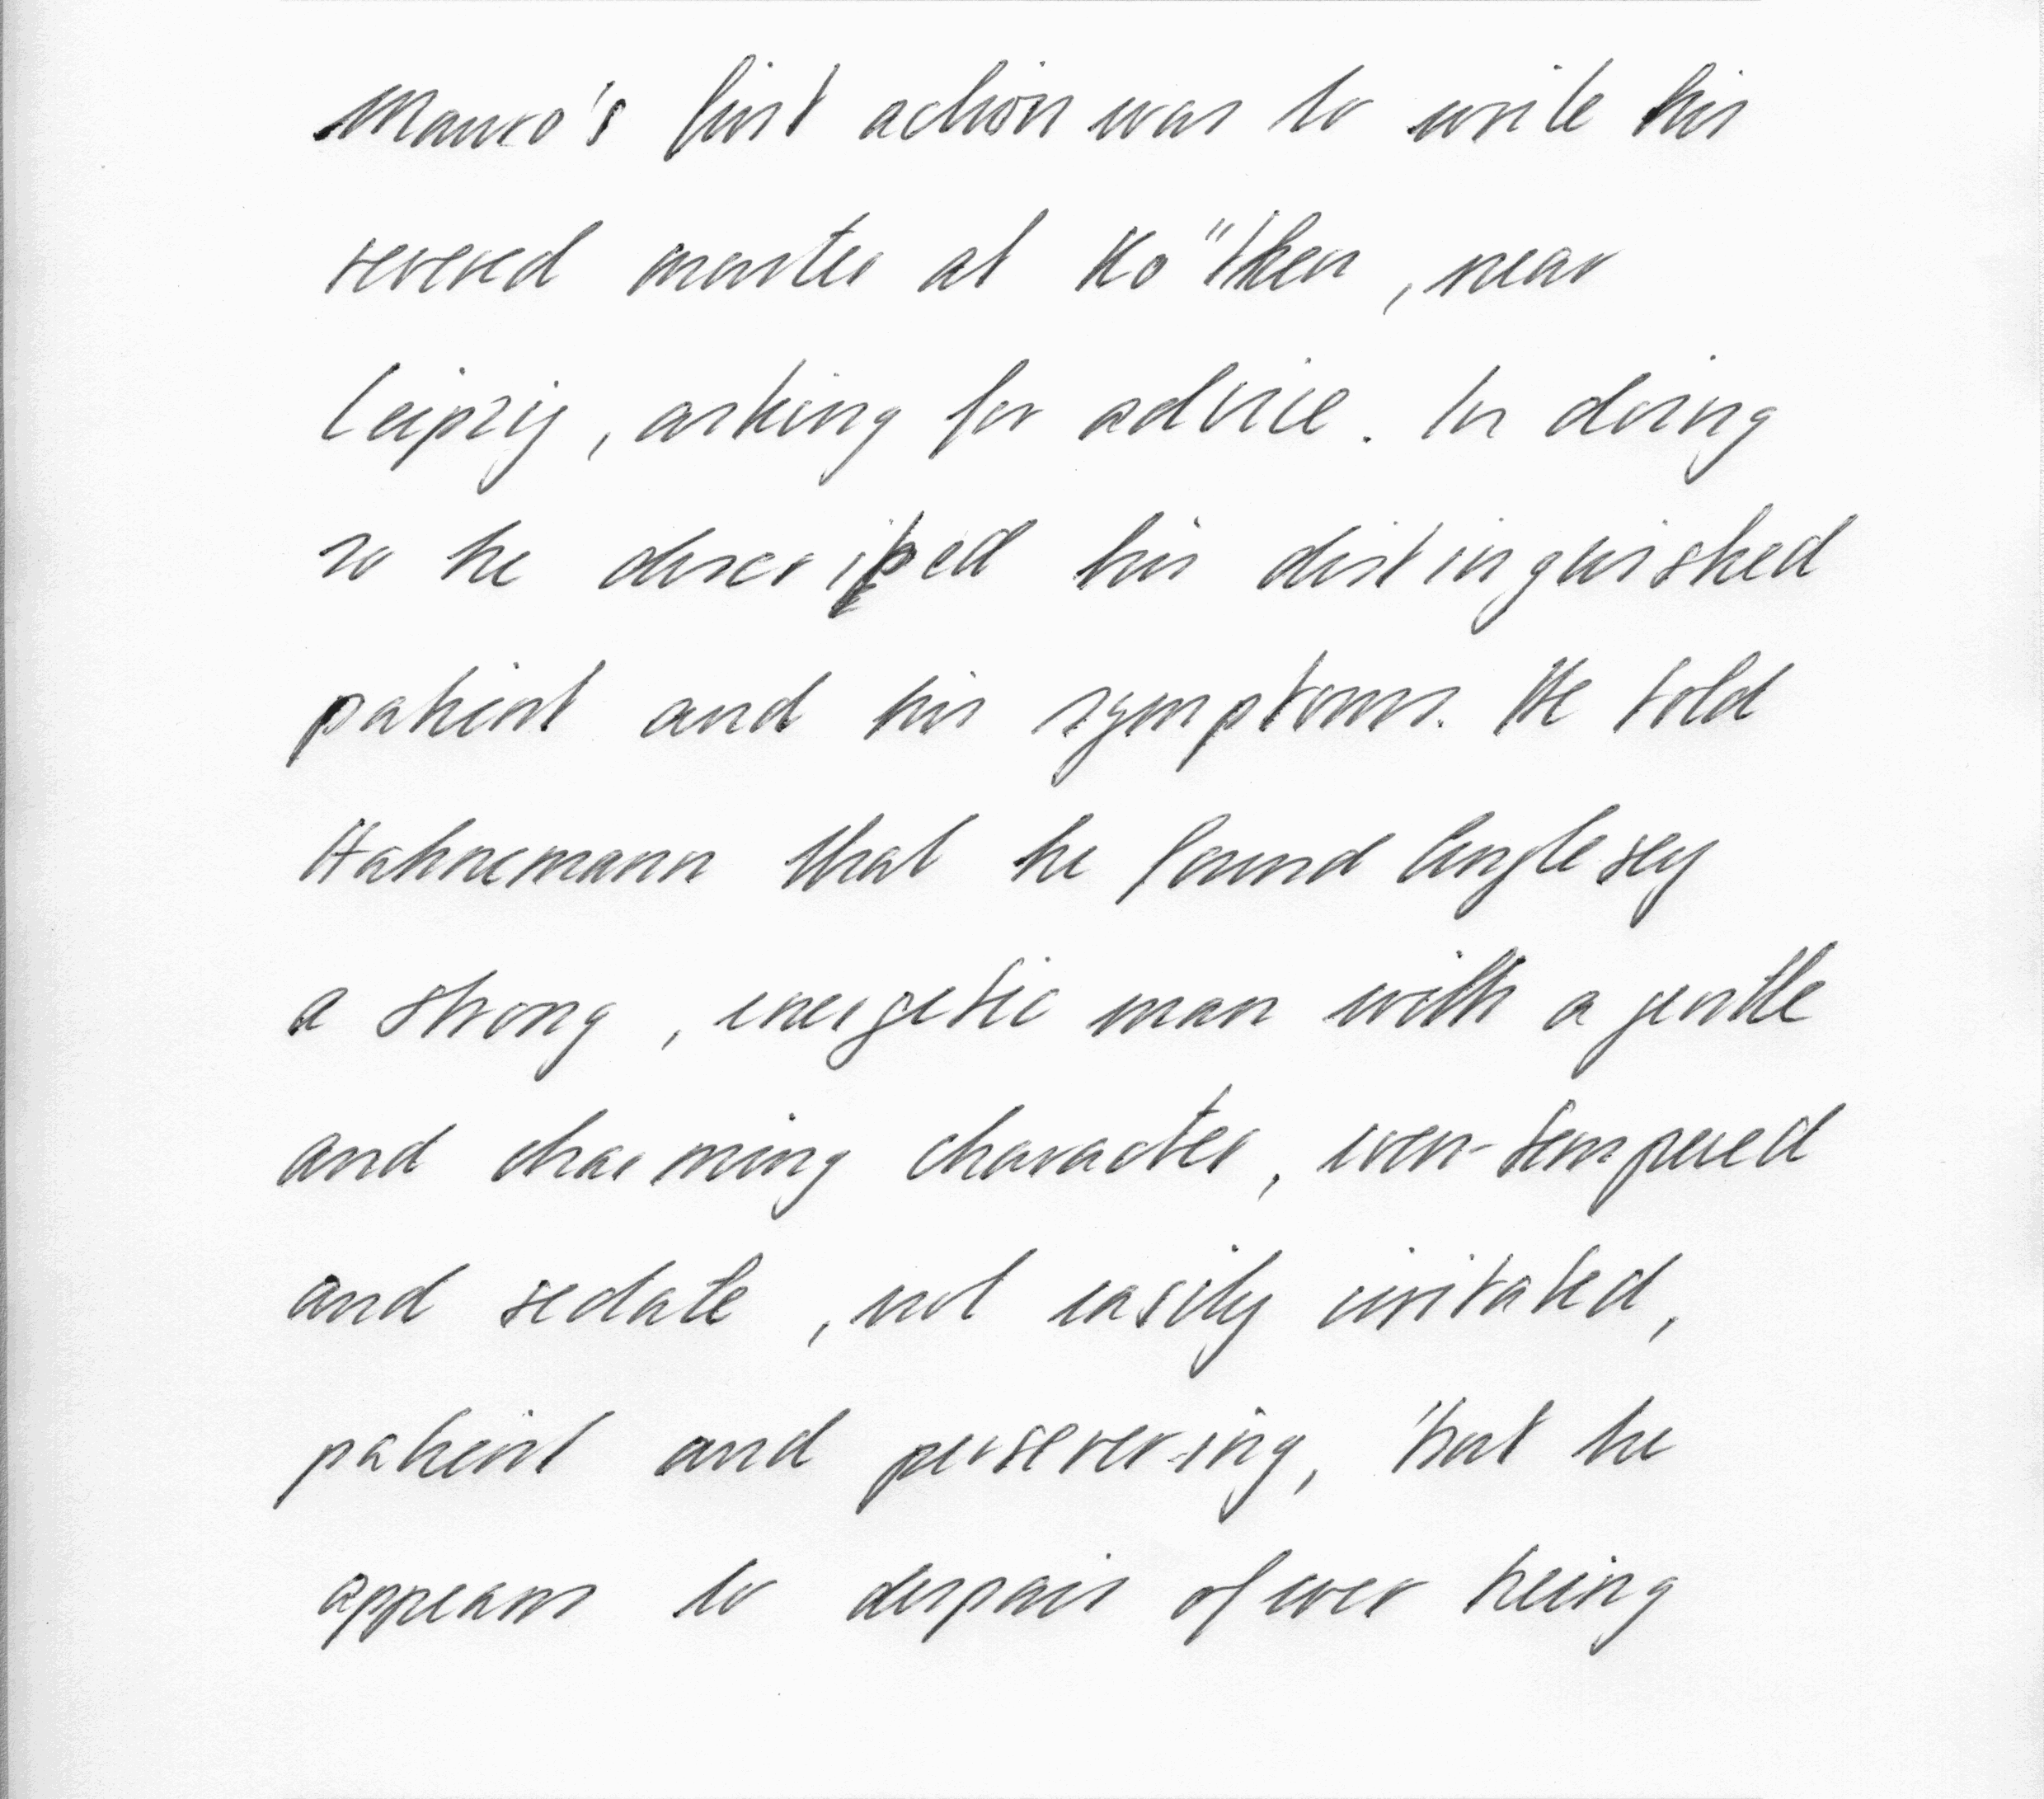 Mauro's first action was to write his
revered master at Ko"then, near
Leipzig, asking for advice. In doing
so he described his distinguished
patient and his symptoms. He told
Hahnemann that he found Anglesey
a strong, energetic man with a gentle
and charming character, even-tempered
and sedate, not easily irritated,
patient and persevering, that he
appears to despair of ever being